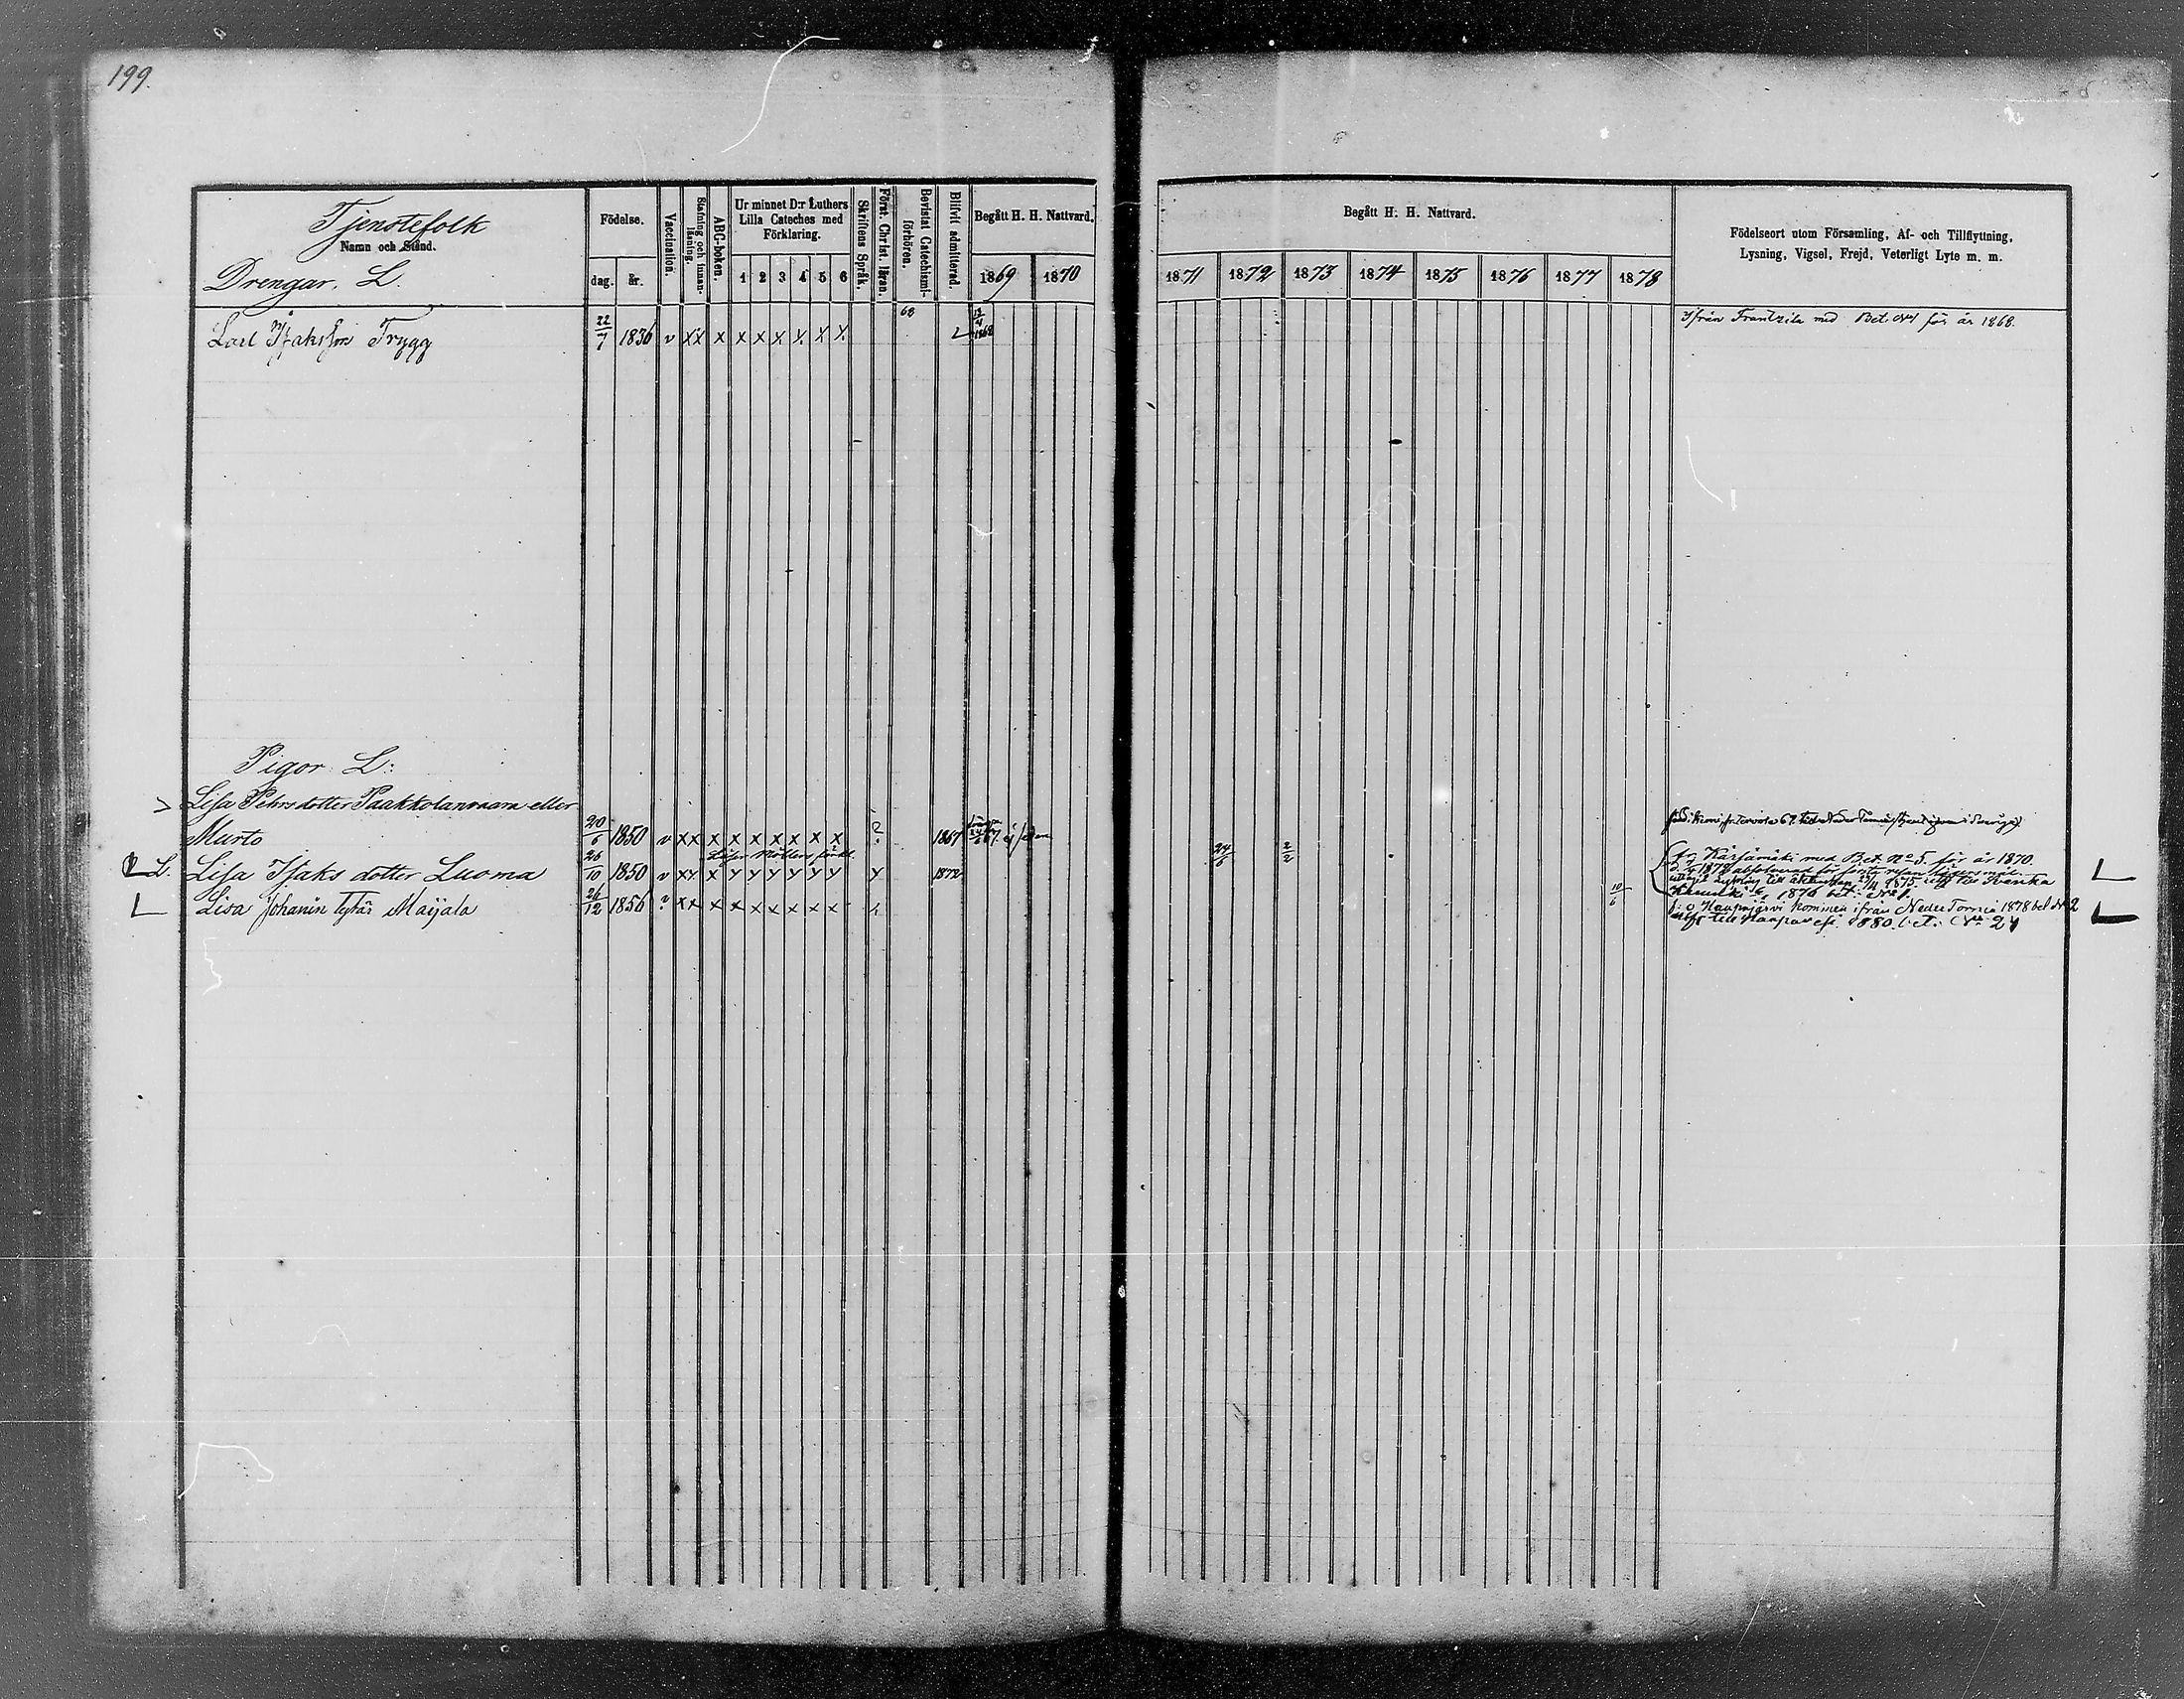 199.
Tjenstefolk
Namn och Stånd.
Drengar. L.
Födelse.
dag. år.
Vaccination.
Stafning och innanläsning.
ABC-boken.
Ur minnet D:r Luthers Lilla Cateches med Förklaring.
1 2 3 4 5 6
Skriftens Språk.
Först. Christ. läran.
Bevistat Catechismiförhören.
Blifvit admitterad.
Begått H. H. Nattvard.
1869 1870
Begått H. H. Nattvard.
1871 1872 1873 1874 1875 1876 1877 1878
Födelseort utom Församling, Af- och Tillflyttning,
Lysning, Vigsel, Frejd, Veterligt Lyte m. m.
Carl Isaksson Trygg 22/7 1836 v xx x x x x x x x 68 1868 Ifrån Frantzila med Bet. N:o 1 för år 1868.
Pigor L:
Lisa Pehrsdotter Paakkolanvaara eller
Murto 20/6 1850 v xx x x x x x x x ? 1867
L. Lisa Isaks dotter Luoma 26/10 1850 v xx x x x x x x x x 1872 24/6 2/2 Kärsämäki med Bet. N:o 5. för år 1870.
1876 bet. N:o
L Lisa Johanin tytär Maijala 26/12 1856 ? xx x x x x x x x 10/6 Haapajärvi kommen ifrån Neder Torneå 1878 bet N:o 2
till Haapavesi 1880 bet. N:o 24